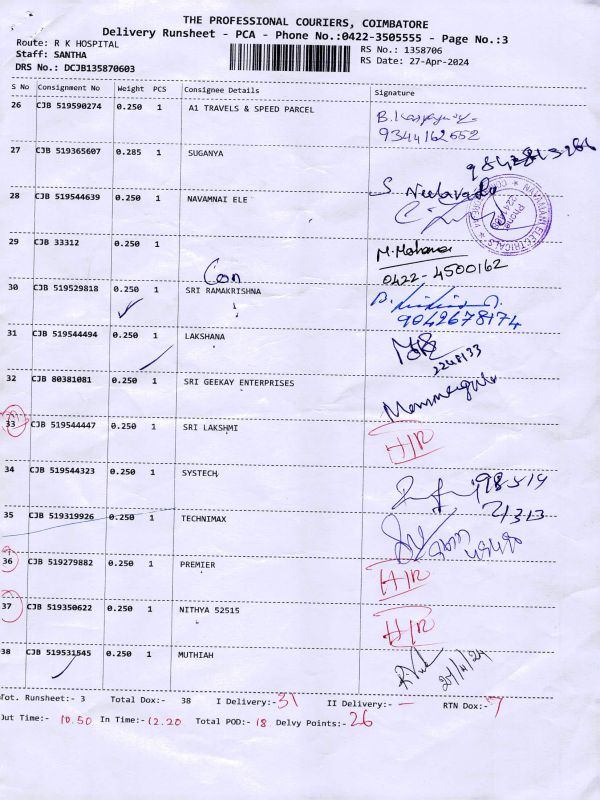 THE PROFESSIONAL COURIERS, COIMBATORE
Delivery Runsheet - PCA - Phone No.:0422-3505555 - Page No.:3
Route: R K HOSPITAL
Staff: SANTHA
DRS No.: DCJB135870603
RS No.: 1358706
RS Date: 27-Apr-2024
S No Consignment No Weight PCS Consignee Details Signature
26 CJB 519590274 0.250 1 A1 TRAVELS & SPEED PARCEL
9344162552
27 CJB 519365607 0.285 1 SUGANYA
28 CJB 519544639 0.250 1 NAVAMNAI ELE
29 CJB 33312 0.250 1
M. Mohana
0422-4500162
30 CJB 519529818 0.250 1 SRI RAMAKRISHNA
9042678174
31 CJB 519544494 0.250 1 LAKSHANA
2248133
32 CJB 80381081 0.250 1 SRI GEEKAY ENTERPRISES
33 CJB 519544447 0.250 1 SRI LAKSHMI
H/R
34 CJB 519544323 0.250 1 SYSTECH
35 CJB 519319926 0.250 1 TECHNIMAX
36 CJB 519279882 0.250 1 PREMIER
H/R
37 CJB 519350622 0.250 1 NITHYA 52515
H/R
38 CJB 519531545 0.250 1 MUTHIAH
Tot. Runsheet:- 3 Total Dox:- 38 I Delivery:- 31 II Delivery:- — RTN Dox:- 7
Out Time:- 10.50 In Time:- 12.20 Total POD:- 18 Delvy Points:- 26